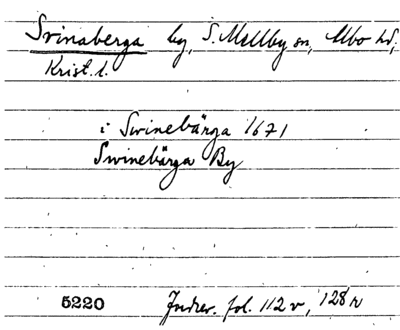 Svinaberga by, S. Mellby sn, Albo hd,
Krist. l.
i Swinebärga 1671
Swinebärga By
5220 Jordrev. fol. 112 v, 128 r